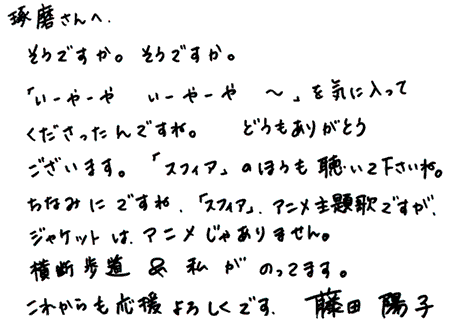 琢磨さんへ.
そうですか。そうですか。
「いーやーや いーやーや 〜」を気に入って
くださったんですね。 どうもありがとう
ございます。「スフィア」のほうも聴いて下さいね。
ちなみにですね、「スフィア」、アニメ主題歌ですが、
ジャケットは、アニメじゃありません。
横断歩道 & 私が のってます。
これからも応援よろしくです. 藤田 陽子